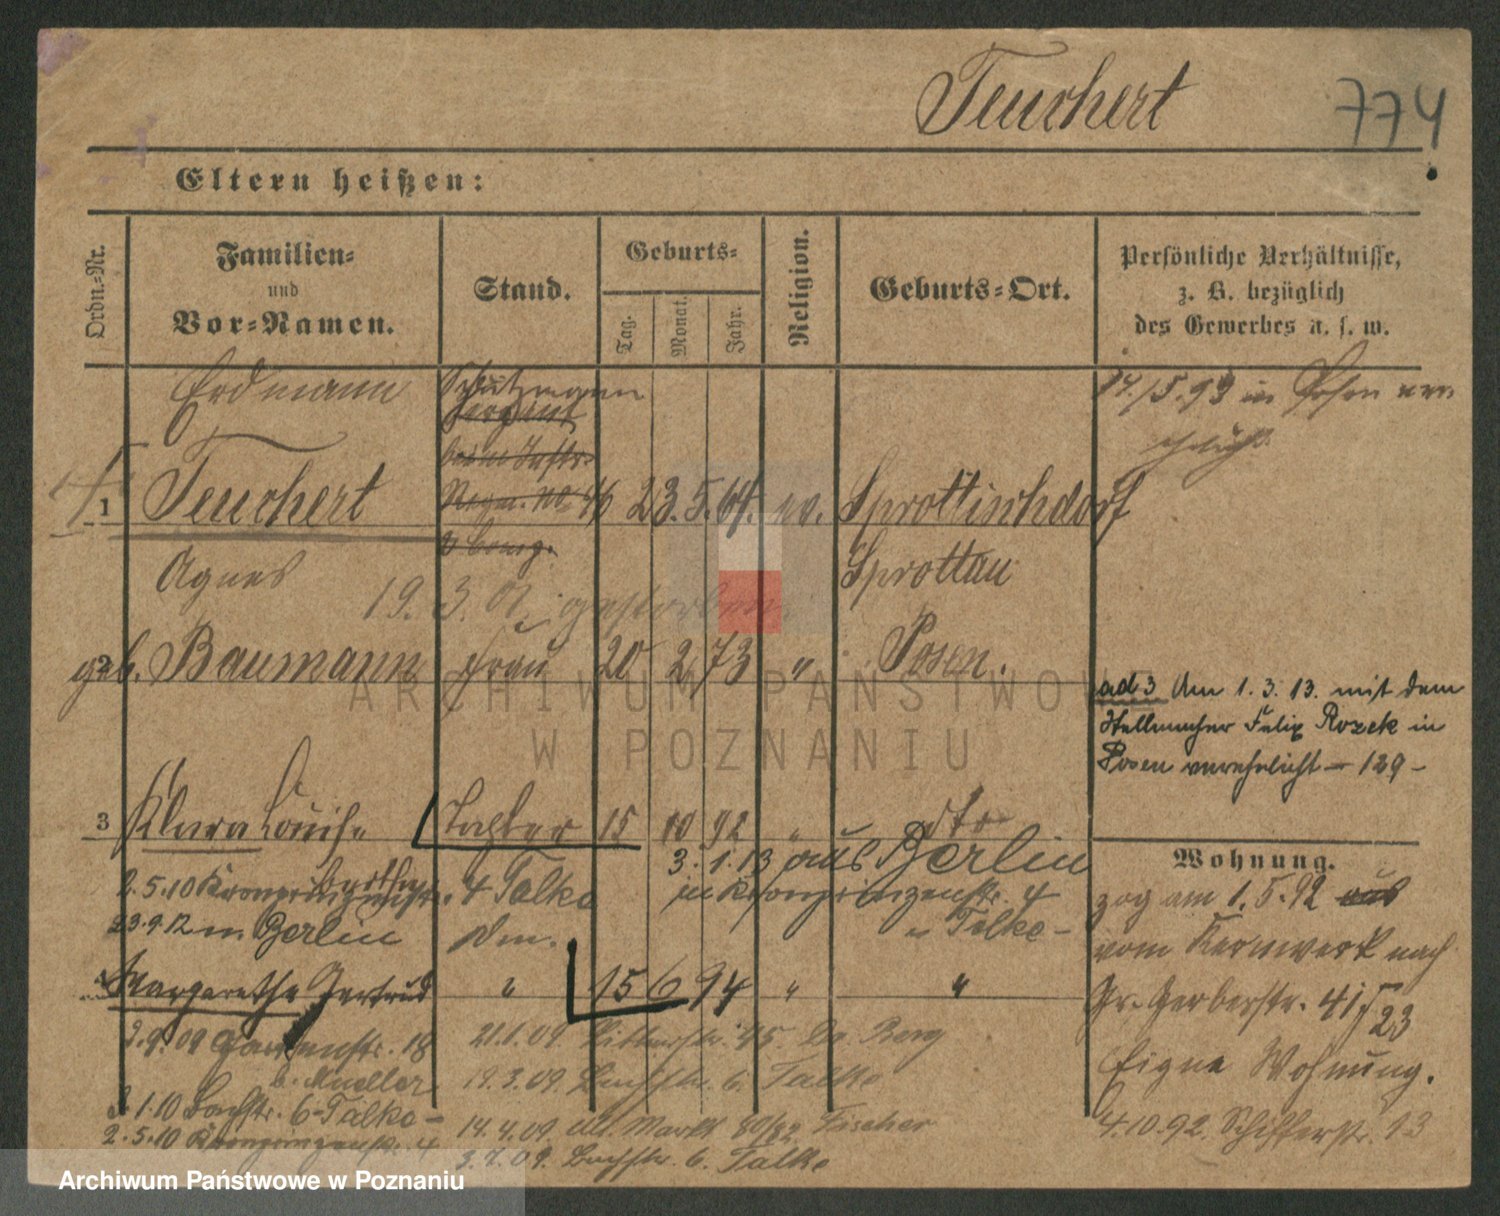 Teuchert 774
Eltern heißen:
Ordn.-Nr.
Familien-
und
Vor-Namen.
Stand.
Geburts-
Tag.
Monat.
Jahr.
Religion.
Geburts-Ort.
Persönliche Verhältnisse,
z. B. bezüglich
des Gewerbes u. s. w.
Erdmann
Schutzmann
Sergeant
beim Inftr.
Regm. No 46
14./5.93 in Posen ver
1 Teuchert 23. 5. 64. ev. Sprottischdorf
Sprottau
Agnes
19. 3. 01. gestorben.
2 geb. Baumann Frau 20 2 73 " Posen.
ad 3 Am 1. 3. 13. mit dem
Stellmacher Felix Rozek in
Posen verehelicht – 139 –
3 Klara Louise Tochter 15 10 92 " dto
Berthe
3. 1. 13 aus Berlin
in Kronprinzenstr. 4
Talke –
2.5.10 Kronprinzenstr. 4 Talke
23.9.12 n. Berlin
4 Margarethe Gertrud " 15 6 94 " "
2.9.09 Gartenstr. 18
b. Mueller.
3.1.10 Bachstr. 6 – Talke –
2.5.10 Kronprinzenstr. 4
21.1.09. 45. Berg
19.3.09. Bachstr. 6. Talke
14.4.09. Alt. Markt 80/82 Fischer
3.7.09. Bachstr. 6. Talke
Wohnung.
zog am 1.5.92 aus
vom Kernwerk nach
Gr. Gerberstr. 41/23
Eigne Wohnung.
4.10.92. Schifferstr. 13
ARCHIWUM PAŃSTWOWE
W POZNANIU
Archiwum Państwowe w Poznaniu